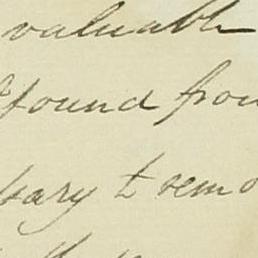 valuable
found from
ssary to remo